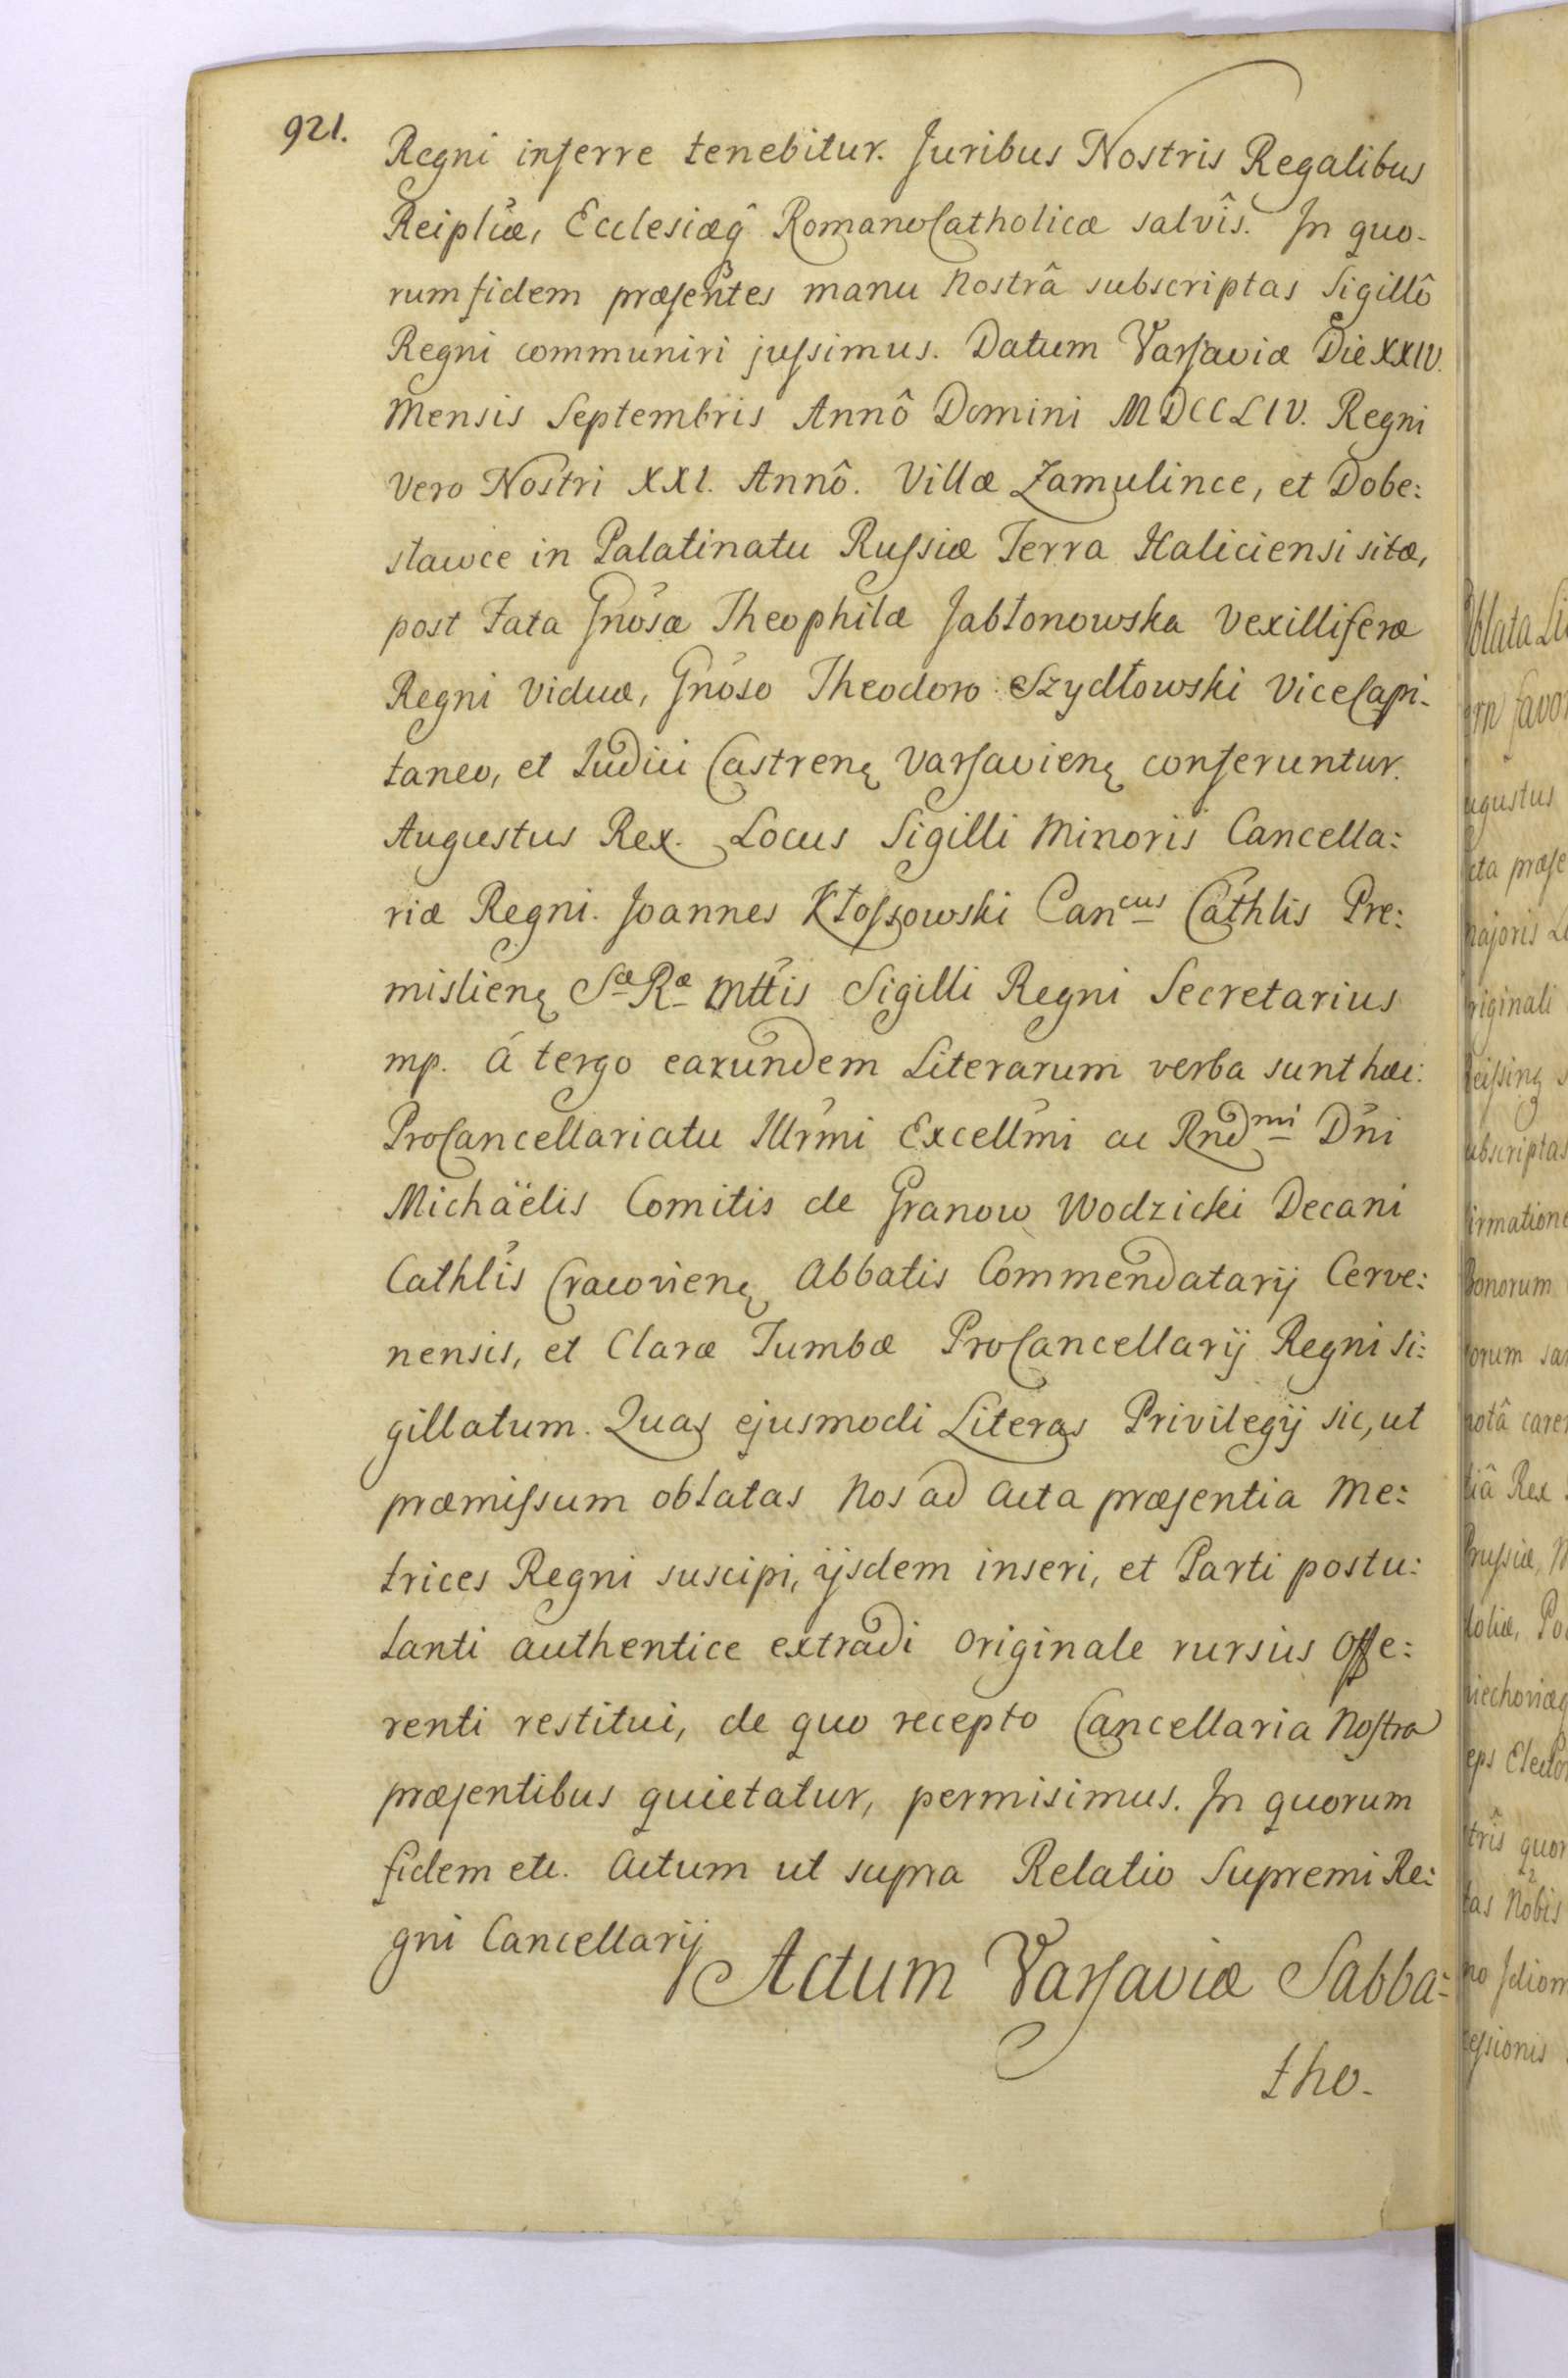 921.
Regni inferre tenebitur. Juribus Nostris Regalibus
Reipliæ, Ecclesiæq̂ RomanoCatholicæ salvîs. In quo-
rum fidem præsentes manu Nostrâ subscriptas Sigillô
Regni communiri jussimus. Datum Varsaviæ Die XXIV.
Mensis Septembris Annô Domini MDCCLIV. Regni
Vero Nostri XXI. Annô. Villæ Zamulince, et Dobe:
stawce in Palatinatu Russiæ Terra Haliciensi sitæ,
post Fata Gnosæ Theophilæ Jabłonowska Vexilliferæ
Regni Viduæ, Gnoso Theodoro Szydłowski ViceCapi-
taneo, et Judici Castrenę Varsavienę conferuntur.
Augustus Rex. Locus Sigilli Minoris Cancella:
riæ Regni. Joannes Kłossowski Cancus Cathlis Pre:
mislienę Sæ Ræ Mttis Sigilli Regni Secretarius
mp. á tergo earundem Literarum verba sunt hæc:
ProCancellariatu Illrmi Excellmi ac Rndmi Dni
Michaëlis Comitis de Granow Wodzicki Decani
Cathlis Cracovienę Abbatis Commendatarij Cerve:
nensis, et Claræ Tumbæ ProCancellarij Regni Si:
gillatum. Quas ejusmodi Literas Privilegij sic, ut
præmissum oblatas Nos ad Acta præsentia Me:
trices Regni suscipi, ijsdem inseri, et Parti postu:
lanti authentice extradi Originale rursus Offe:
renti restitui, de quo recepto Cancellaria Nostra
præsentibus quietatur, permisimus. In quorum
fidem etc. Actum ut supra Relatio Supremi Re:
gni Cancellarij
Actum Varsaviæ Sabba:
tho.